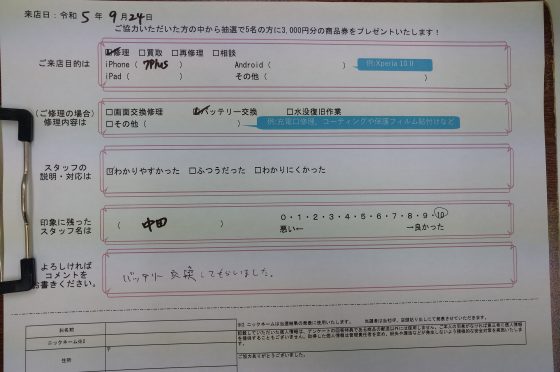 来店日：令和 5 年 9 月 24 日
ご協力いただいた方の中から抽選で5名の方に3,000円分の商品券をプレゼントいたします！
ご来店目的は
☑修理 □買取 □再修理 □相談
iPhone ( 7Plus ) Android ( ) 例:Xperia 10Ⅱ
iPad ( ) その他 ( )
(ご修理の場合)
修理内容は
□画面交換修理 ☑バッテリー交換 □水没復旧作業
□その他 ( 例:充電口修理、コーティングや保護フィルム貼付けなど
スタッフの
説明・対応は
☑わかりやすかった □ふつうだった □わかりにくかった
印象に残った
スタッフ名は
( 中田 )
0・1・2・3・4・5・6・7・8・9・10
悪い← →良かった
よろしければ
コメントを
お書きください。
バッテリー交換してもらいました。
お名前
ニックネーム※2
住所
〒
ご協力ありがとうございました。